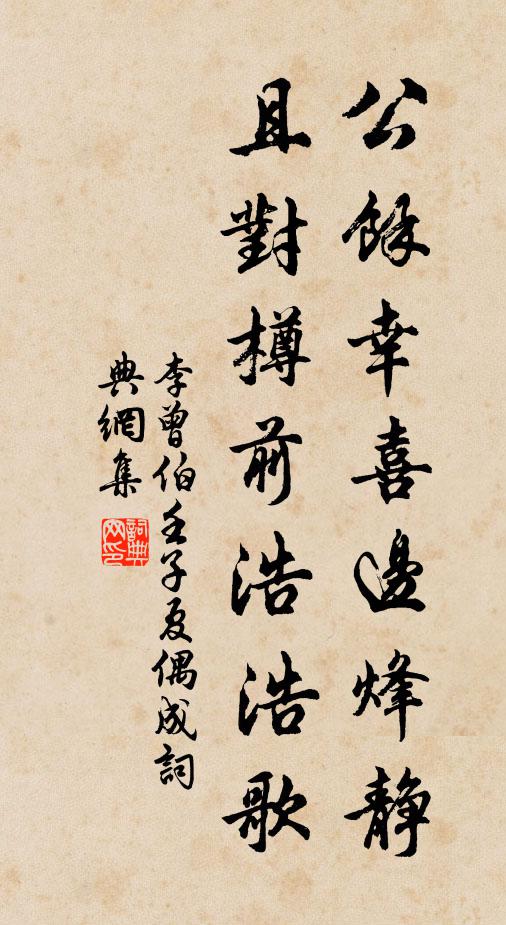 公餘幸喜邊烽靜
且對樽前浩浩歌
李曾伯壬子夏偶成詞
典網集
詞典網印